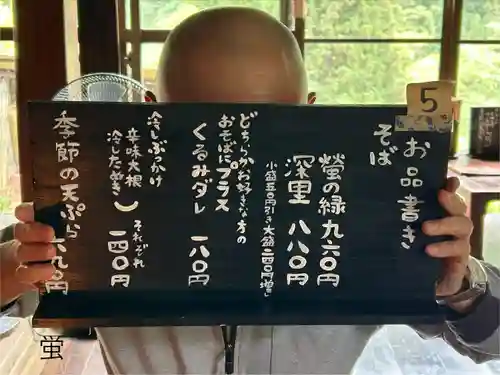 お品書き
そば
螢の緑 九六〇円
深里 八八〇円
小盛五〇円引き 大盛二四〇円増し
どちらかお好きな方の
おそばにプラス
くるみダレ 一八〇円
冷しぶっかけ
辛味大根
冷したぬき
それぞれ
一四〇円
季節の天ぷら 六九〇円
5
蛍